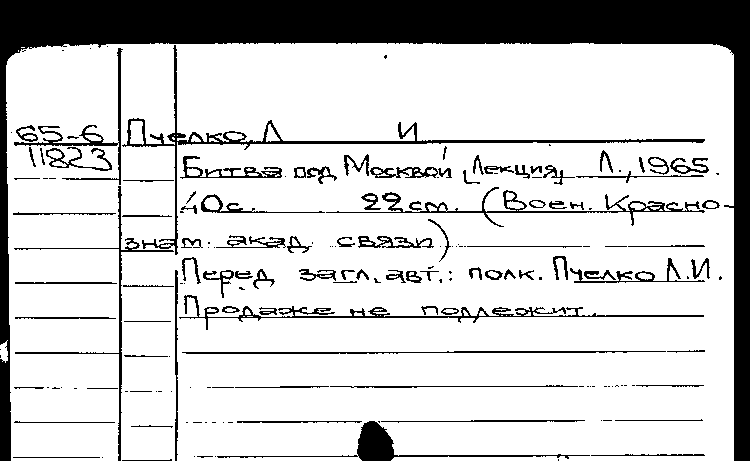 65-6 Пчелко, Л И
11823
Битва под Москвой [Лекция] Л., 1965.
40с. 22см. (Воен. Красно-
знам. акад. связи)
Перед загл. авт.: полк. Пчелко Л.И.
Продаже не подлежит.